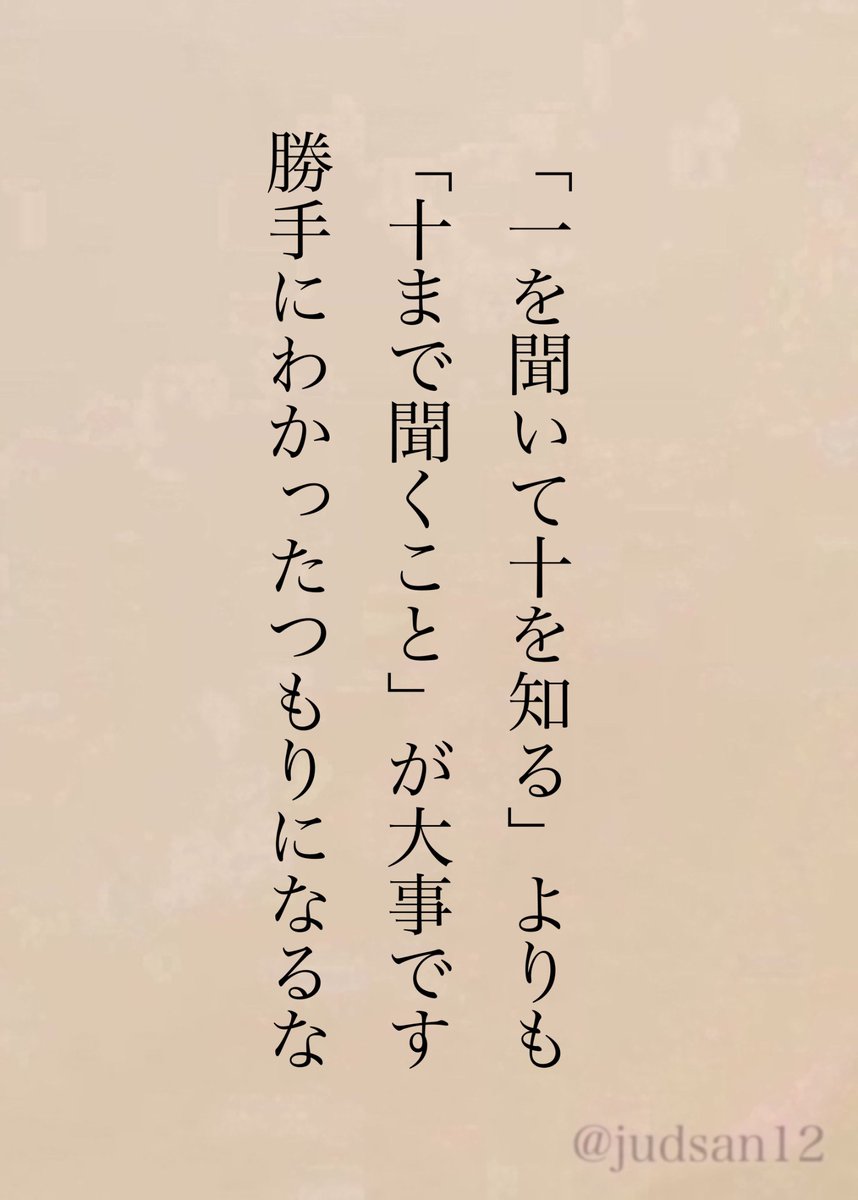 「一を聞いて十を知る」よりも
「十まで聞くこと」が大事です
勝手にわかったつもりになるな
@judsan12